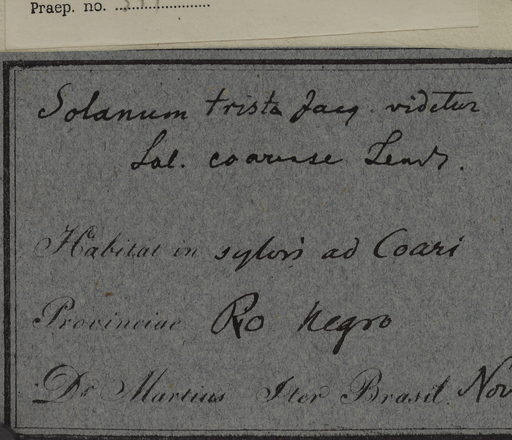 Praep. no. ........................
Solanum triste Jacq. videtur
Sol. coarense Sendt.
Habitat in sylvis ad Coari
Provinciae Rio Negro
Dr Martius Iter Brasil. Nov